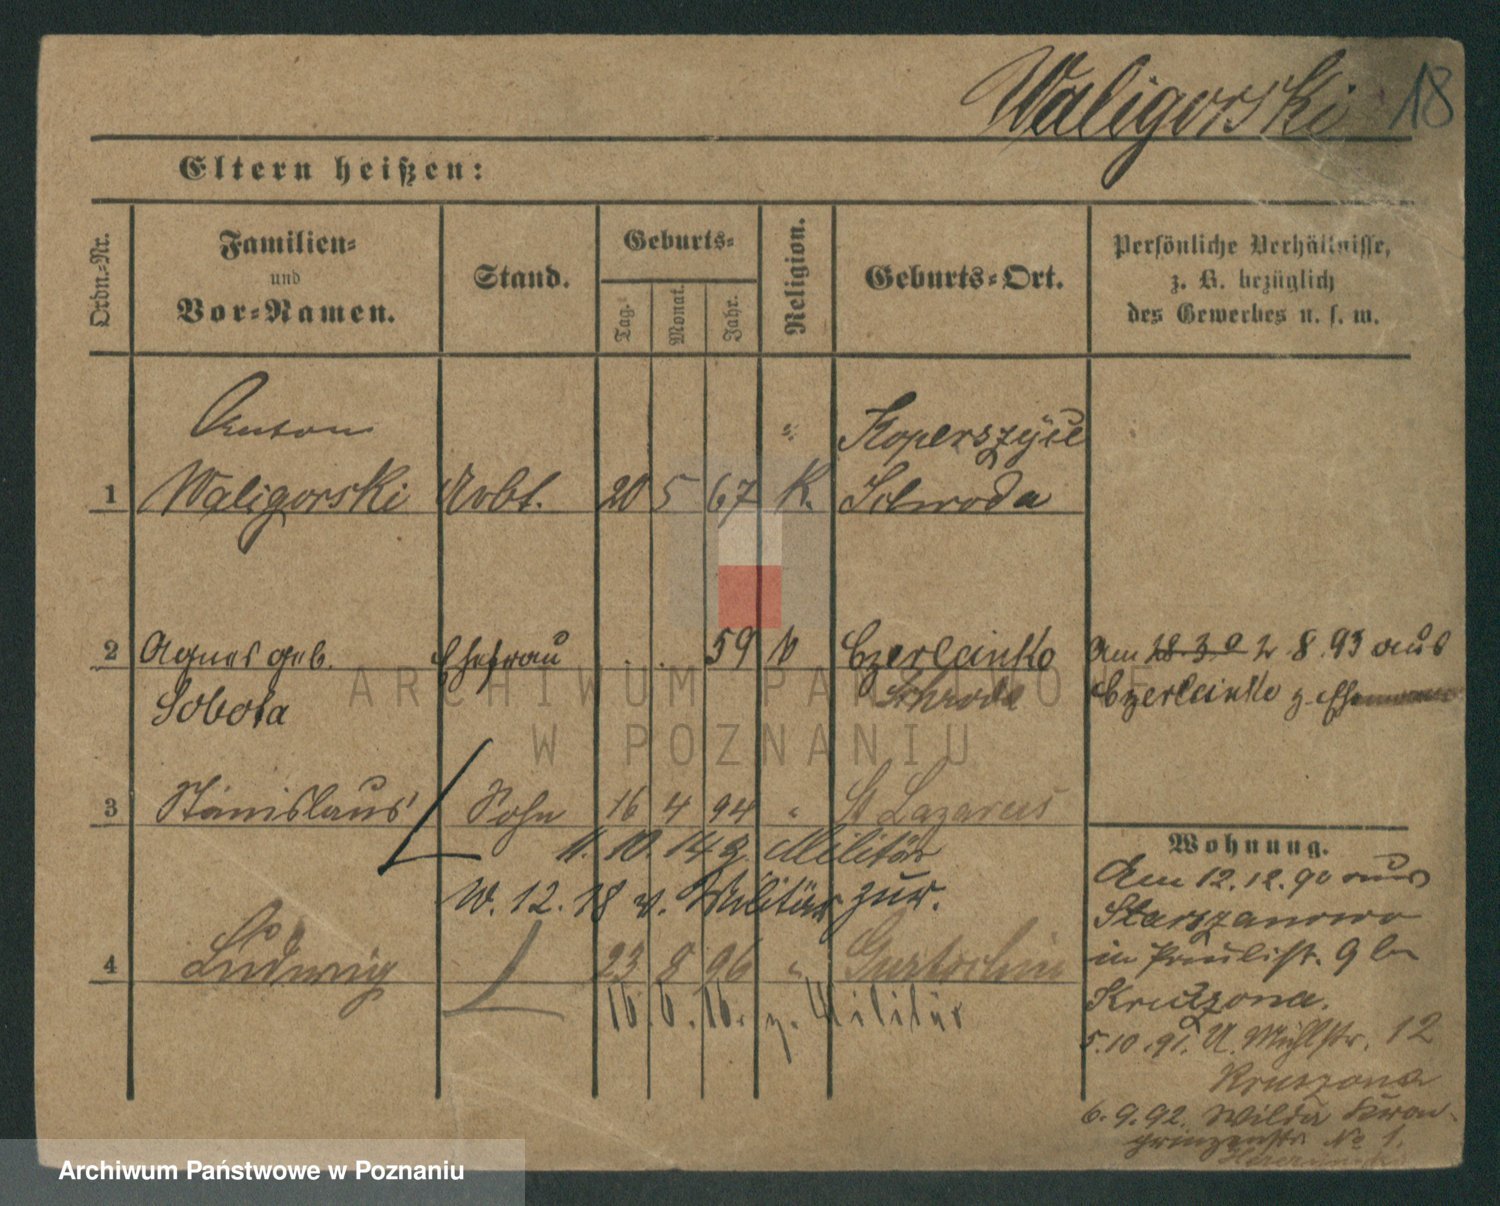 Waligorski 18
Eltern heißen:
Ordn.-Nr.
Familien-
und
Vor-Namen.
Stand.
Geburts-
Tag.
Monat.
Jahr.
Religion.
Geburts-Ort.
Persönliche Verhältnisse,
z. B. bezüglich
des Gewerbes u. s. w.
Anton " Koperszyce
1 Waligorski Arbt. 20 5 67 K. Schroda
2 Agnes geb. Ehefrau 59 Czerleinko Am 8.93 aus
Sobota Schroda Czerleinko z.
ARCHIWUM PAŃSTWOWE
W POZNANIU
3 Stanislaus Sohn 16 4 94 " St Lazarus
11. 10. 14 z. Militär
W. 12. 18 v. Militär zur.
4 Ludwig 23 8 96 " Gurtschin
16. 6. 16. z. Militär
Wohnung.
Am 12.12.90 aus
Starszanowo
in 9 bei
Kruszona.
5.10.91. U. Mühlstr. 12
Kruszona
6.9.92. Wilda Kron-
prinzenstr. No 1.
Archiwum Państwowe w Poznaniu